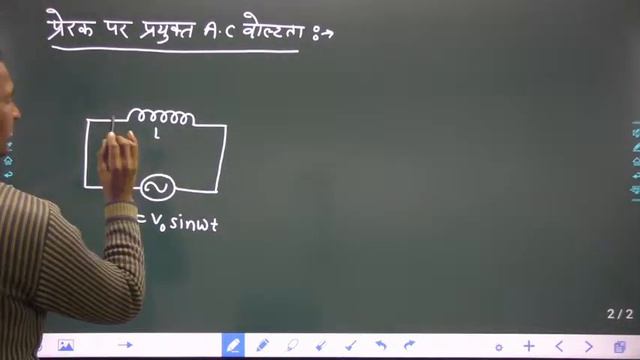 प्रेरक पर प्रयुक्त A.C वोल्टता :→
L
= V₀ sinωt
2/2